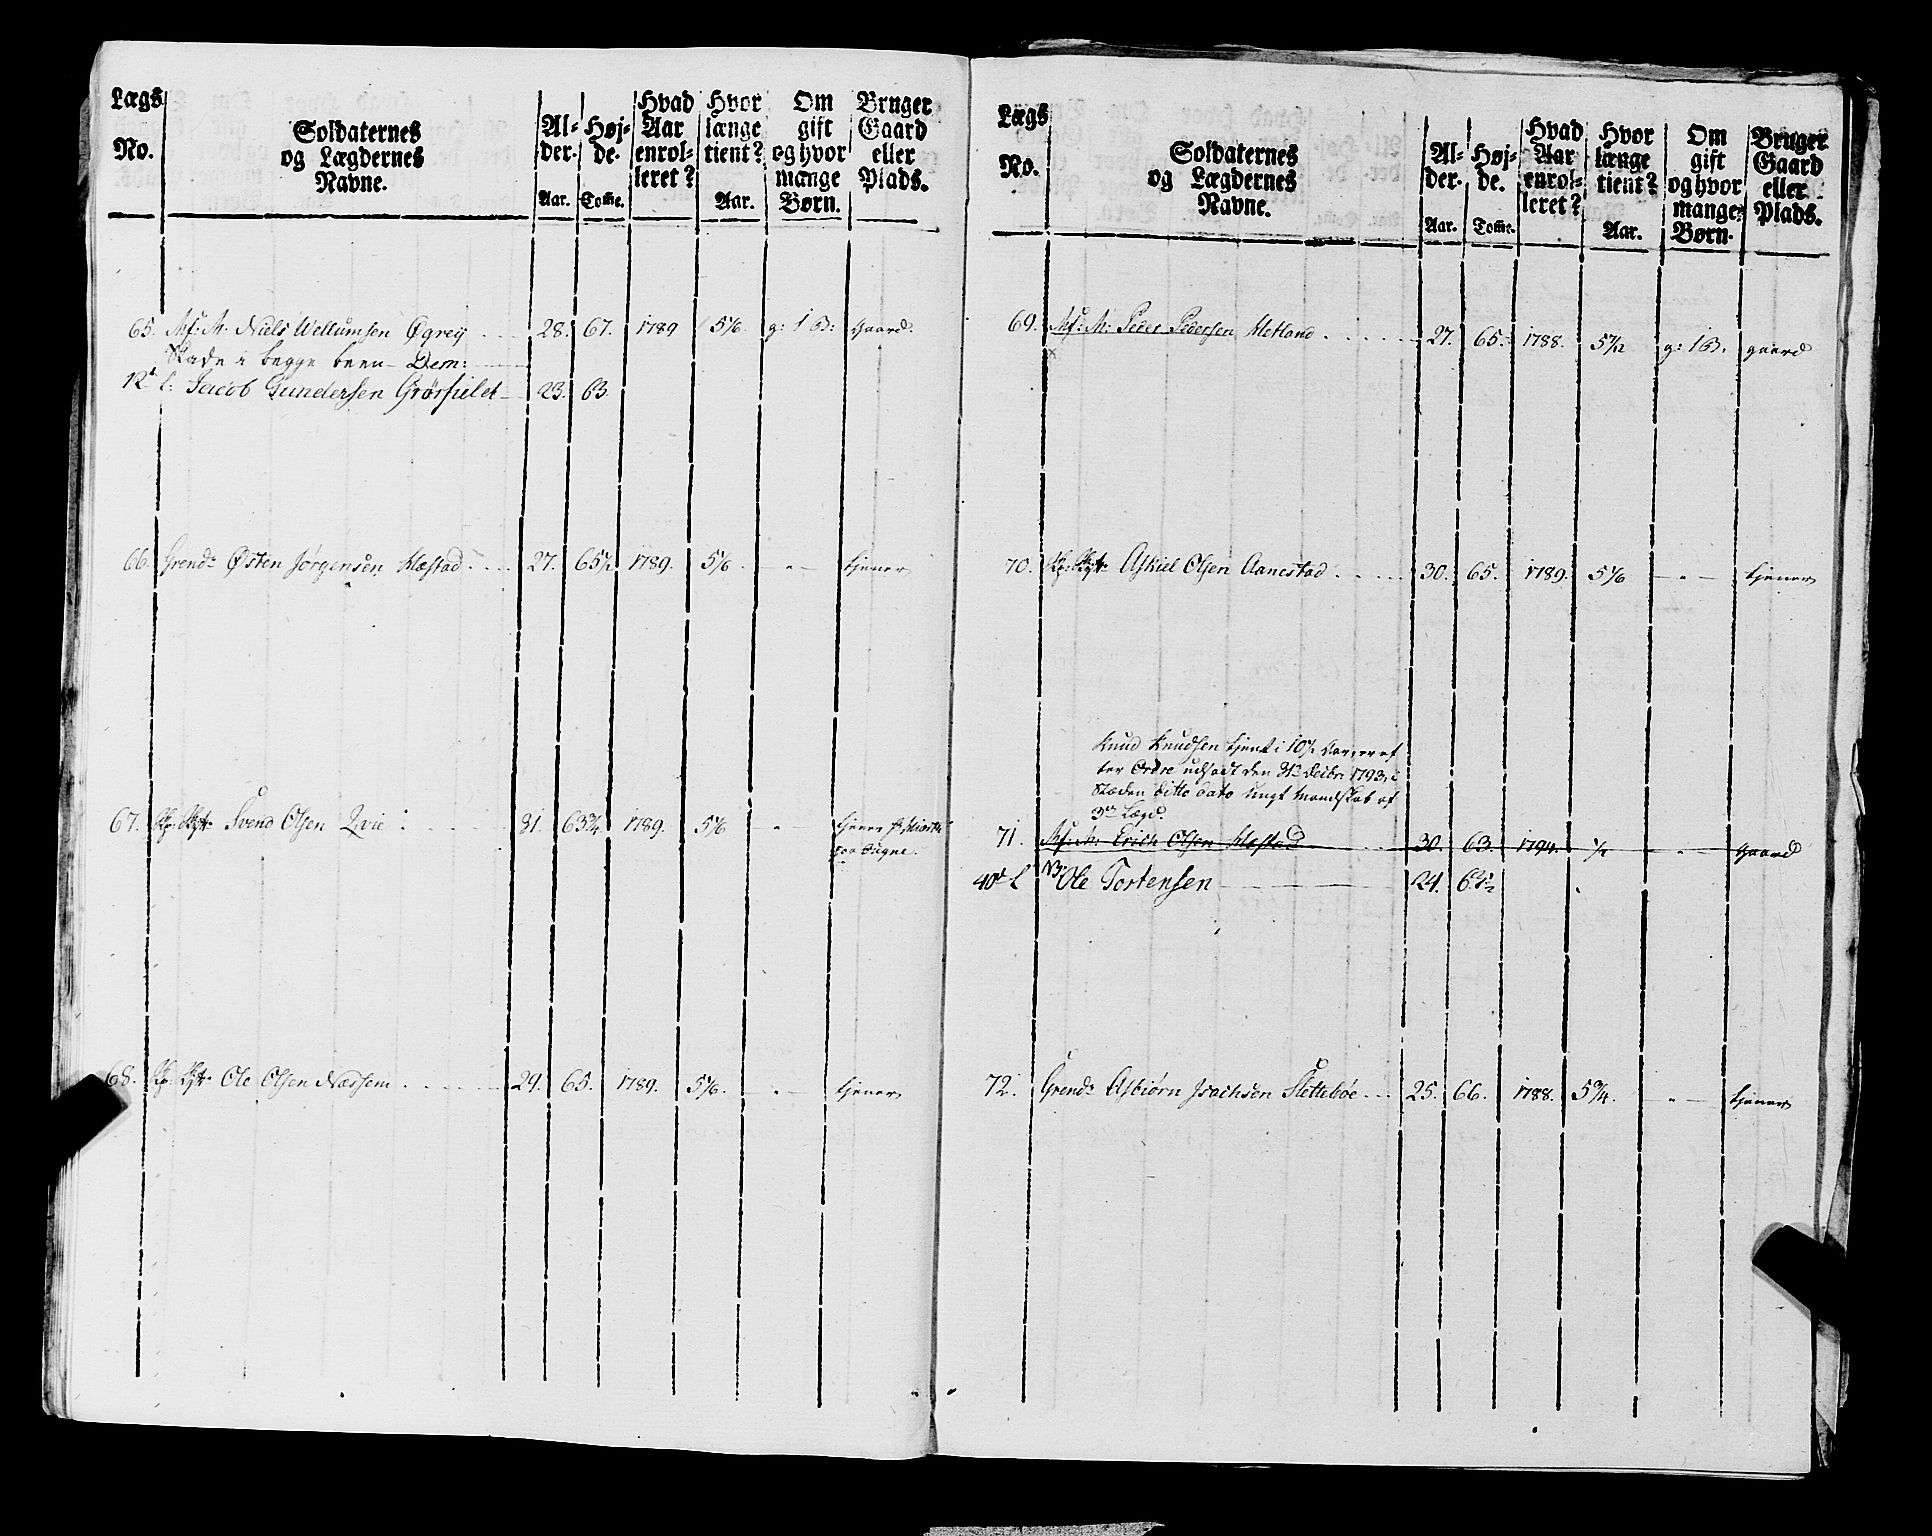 Lægs No. | Soldaternes og Lægdernes Navne. | Al- der. Aar. | Høj- de. Tome. | Hvad Aar enrol- leret? | Hvor længe tient? Aar. | Om gift og hvor mange Børn. | Bruger Gaard eller Plads.
65. Mf: M: Niels Wellumsen Øgreij 28. 67. 1789 5 1/6. g: 1 B: gaard.
Skade i begge been – Dem:
12te l: Jacob Gundersen Grørfieldt 23. 63.
66. Grend: Østen Jørgensen Hæstad 27. 65 1/2 1789. 5 1/6. – " – tjener
67. Svend Olsen Qvie 31. 63 3/4. 1789. 5 1/6 " tjener
paa Augne.
68. Ole Olsen Næssem 29. 65. 1789. 5 1/6. " – tjener
Lægs No. | Soldaternes og Lægdernes Navne. | Al- der. Aar. | Høj- de. Tome. | Hvad Aar enrol- leret? | Hvor længe tient? Aar. | Om gift og hvor mange Børn. | Bruger Gaard eller Plads.
69. Mf: M: Peder Pedersen Hetland 27. 65. 1788. 5 7/12 g: 1 B. gaard
x
70. Askiel Olsen Aanestad 30. 65. 1789. 5 1/6 – " – tjener
Knud Knudsen tjent i 10 1/2 Aar, er ef
ter Ordre udsadt den 31te Decbr 1793, i
Stæden ditto dato ungt Mandskab af
3de Lægd.
71. Mf: M: Erich Olsen Hæstad 30. 63. 1794. 1/2 – " – gaard
40de L NB Ole Tortensen 24. 63 1/2
72. Grend: Asbiørn Isachsen Slettebøe 25. 66. 1788. 5 3/4. " – tjener